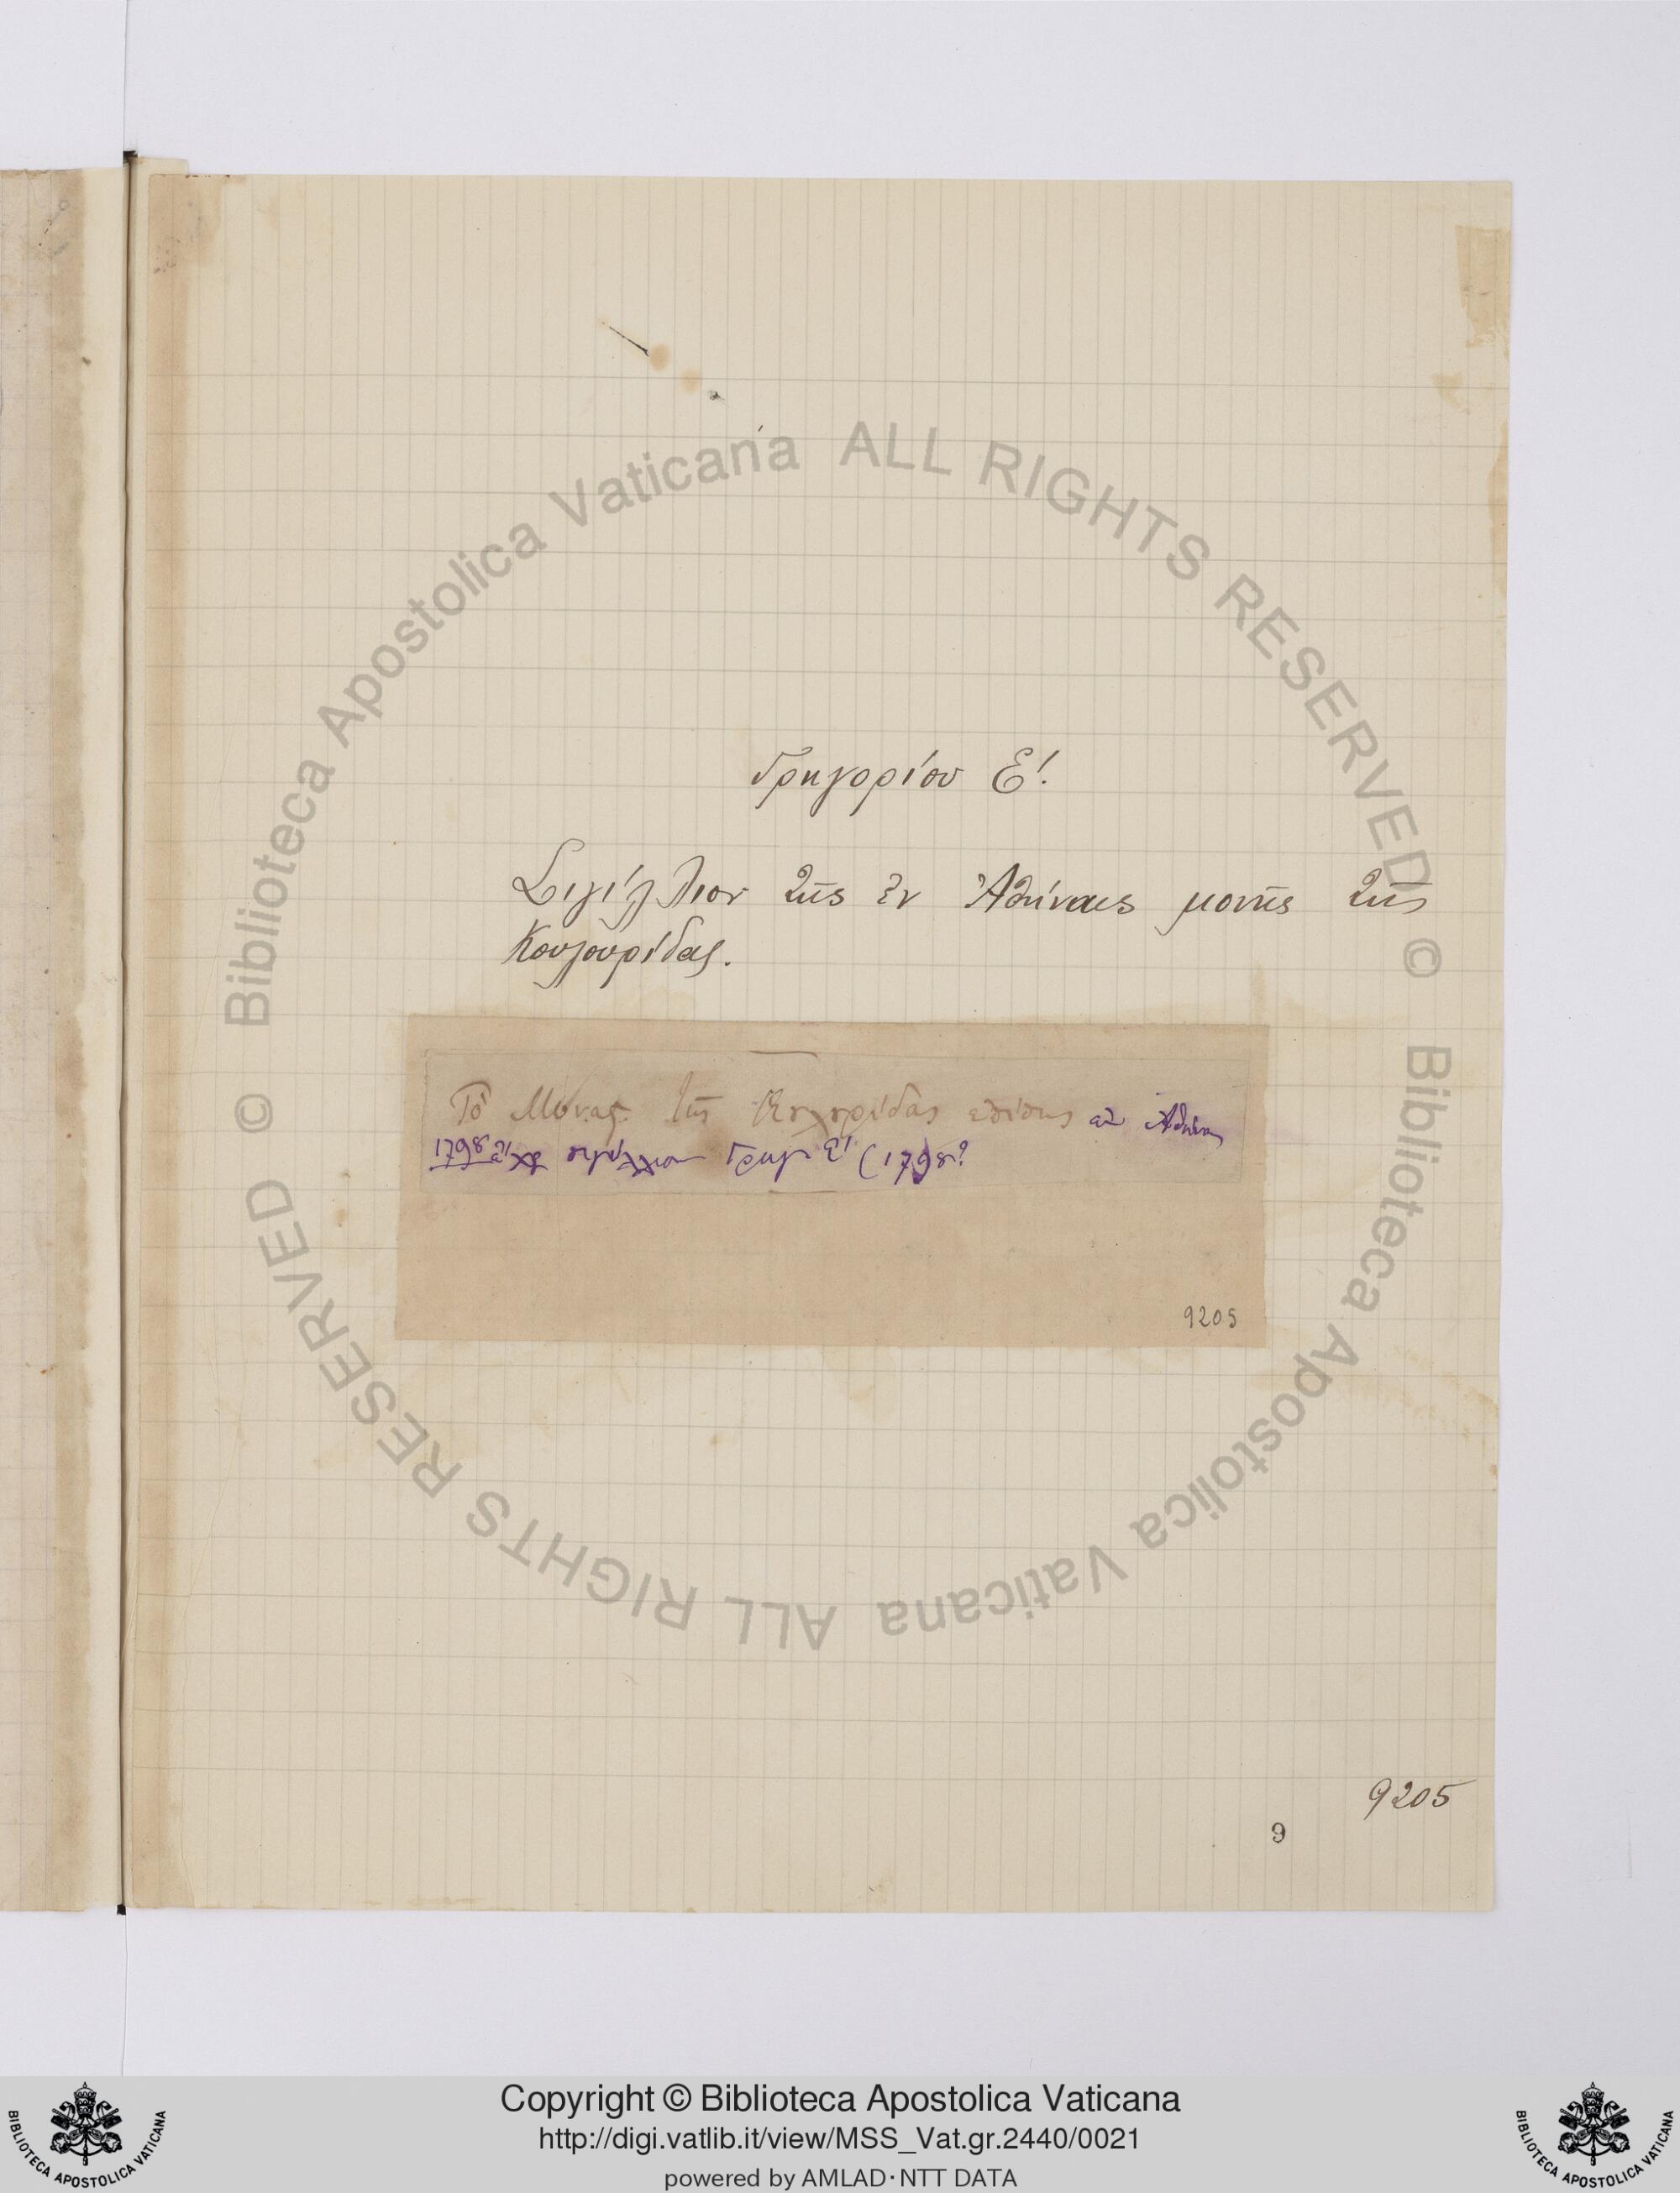 Γρηγορίου Ε'.
Σιγίλλιον τῆς ἐν Ἀθήναις μονῆς τῆς
Κουλουρίδας.
Τὸ Μονασ. τῆς ἐπίσης ἐν Ἀθήναις
1798 εἶχε σιγίλλιον Γρηγ Ε' (1798?
9205
9205
9
Biblioteca Apostolica Vaticana ALL RIGHTS RESERVED ©
Biblioteca Apostolica Vaticana ALL RIGHTS RESERVED ©
Copyright © Biblioteca Apostolica Vaticana
http://digi.vatlib.it/view/MSS_Vat.gr.2440/0021
powered by AMLAD·NTT DATA
BIBLIOTECA APOSTOLICA VATICANA
BIBLIOTECA APOSTOLICA VATICANA